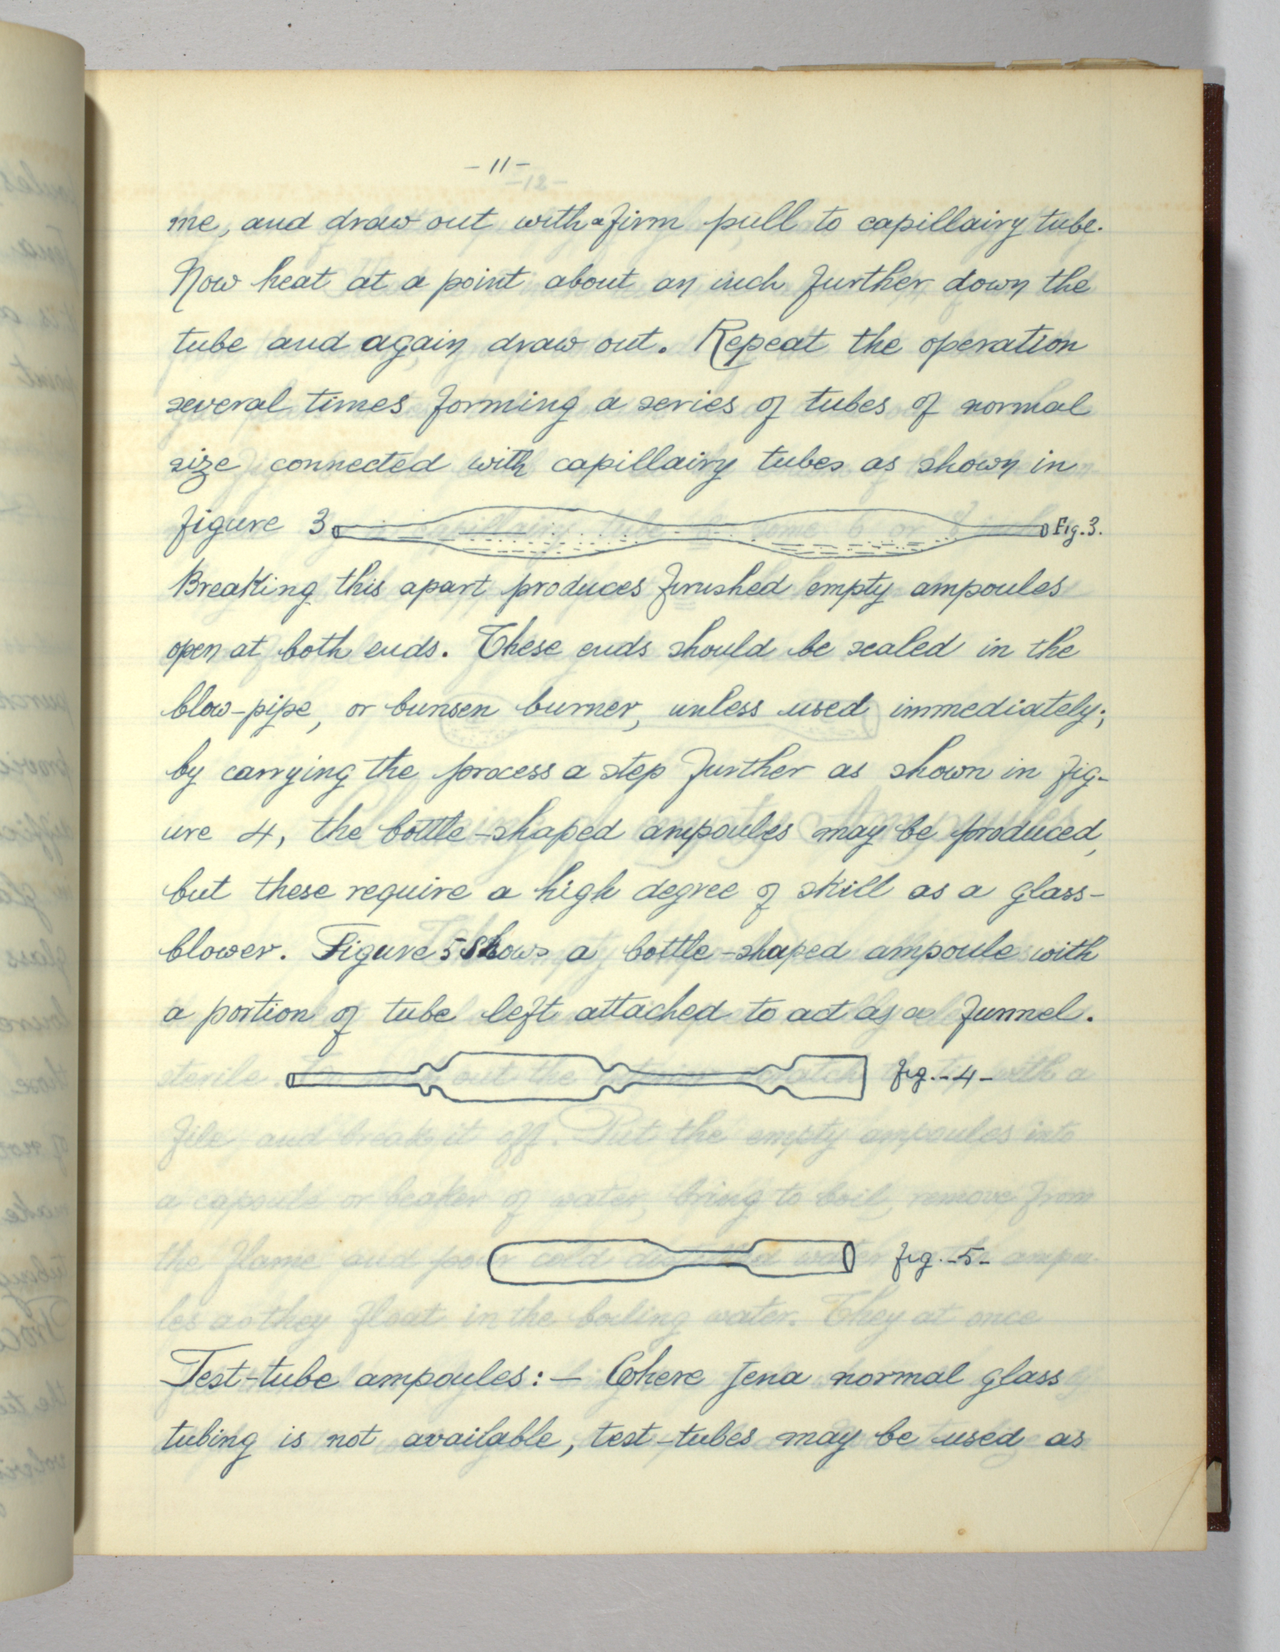 -11-
me, and draw out with a firm pull to capillairy tube.
Now heat at a point about an inch further down the
tube and again draw out. Repeat the operation
several times forming a series of tubes of normal
size connected with capillairy tubes as shown in
figure 3 Fig. 3.
Breaking this apart produces finished empty ampoules
open at both ends. These ends should be sealed in the
blow-pipe, or bunsen burner, unless used immediately;
by carrying the process a step further as shown in fig-
ure 4, the bottle-shaped ampoules may be produced,
but these require a high degree of skill as a glass-
blower. Figure 5 shows a bottle-shaped ampoule with
a portion of tube left attached to act as a funnel.
fig. -4-
fig. -5-
Test-tube ampoules: - Where Jena normal glass
tubing is not available, test-tubes may be used as